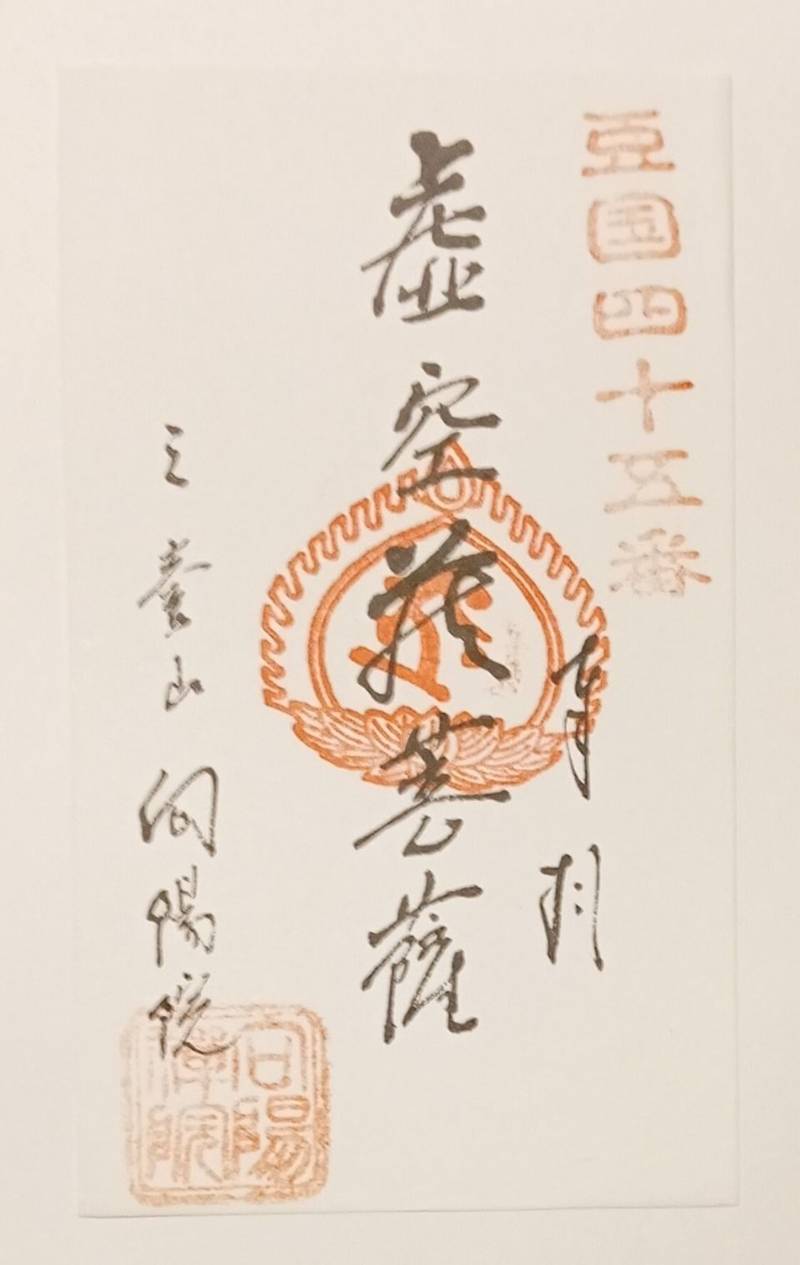 豆国四十五番
奉拝
虚空蔵菩薩
山向陽院
向陽禅院